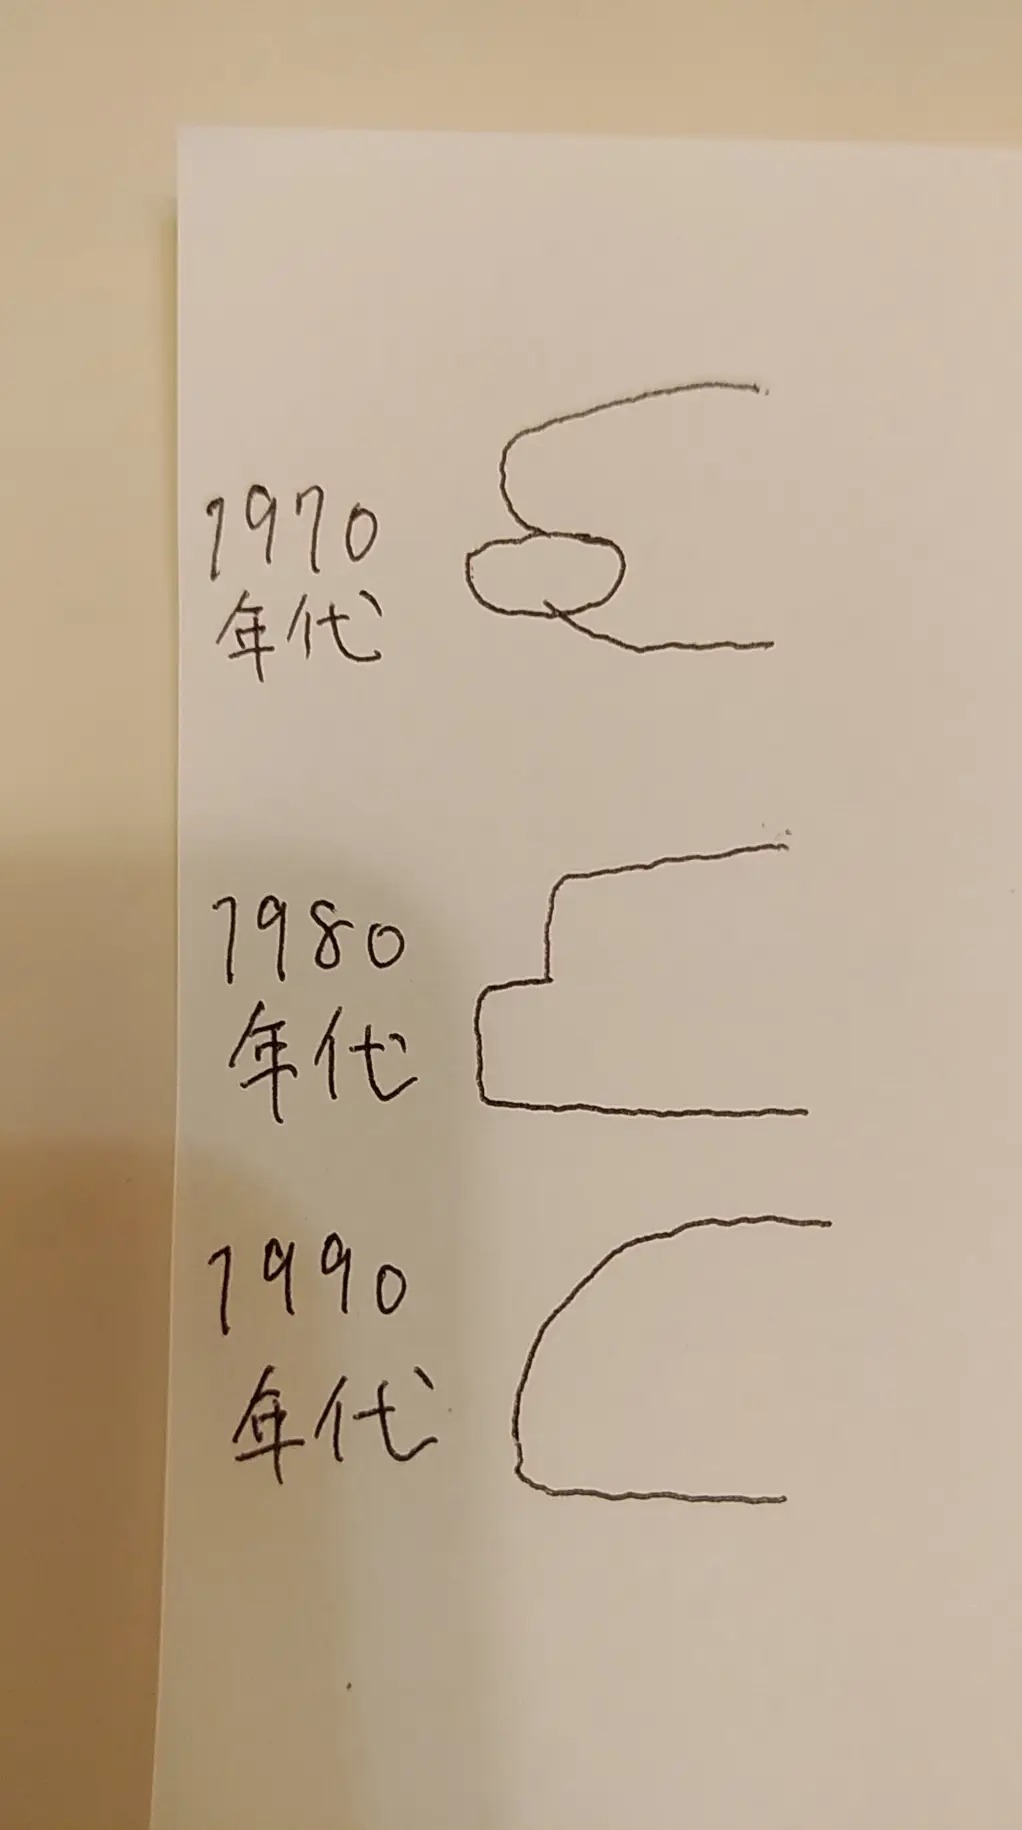 1970
年代
1980
年代
1990
年代